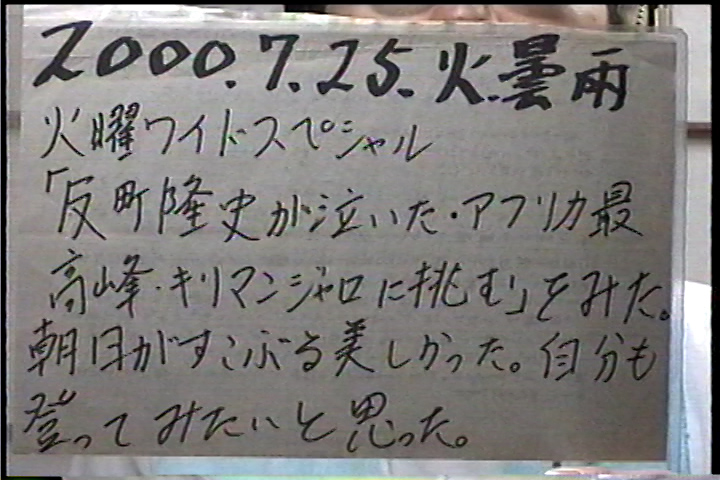 2000.7.25.火.曇雨
火曜ワイドスペシャル
「反町隆史が泣いた・アフリカ最
高峰・キリマンジャロに挑む」をみた。
朝日がすこぶる美しかった。自分も
登ってみたいと思った。